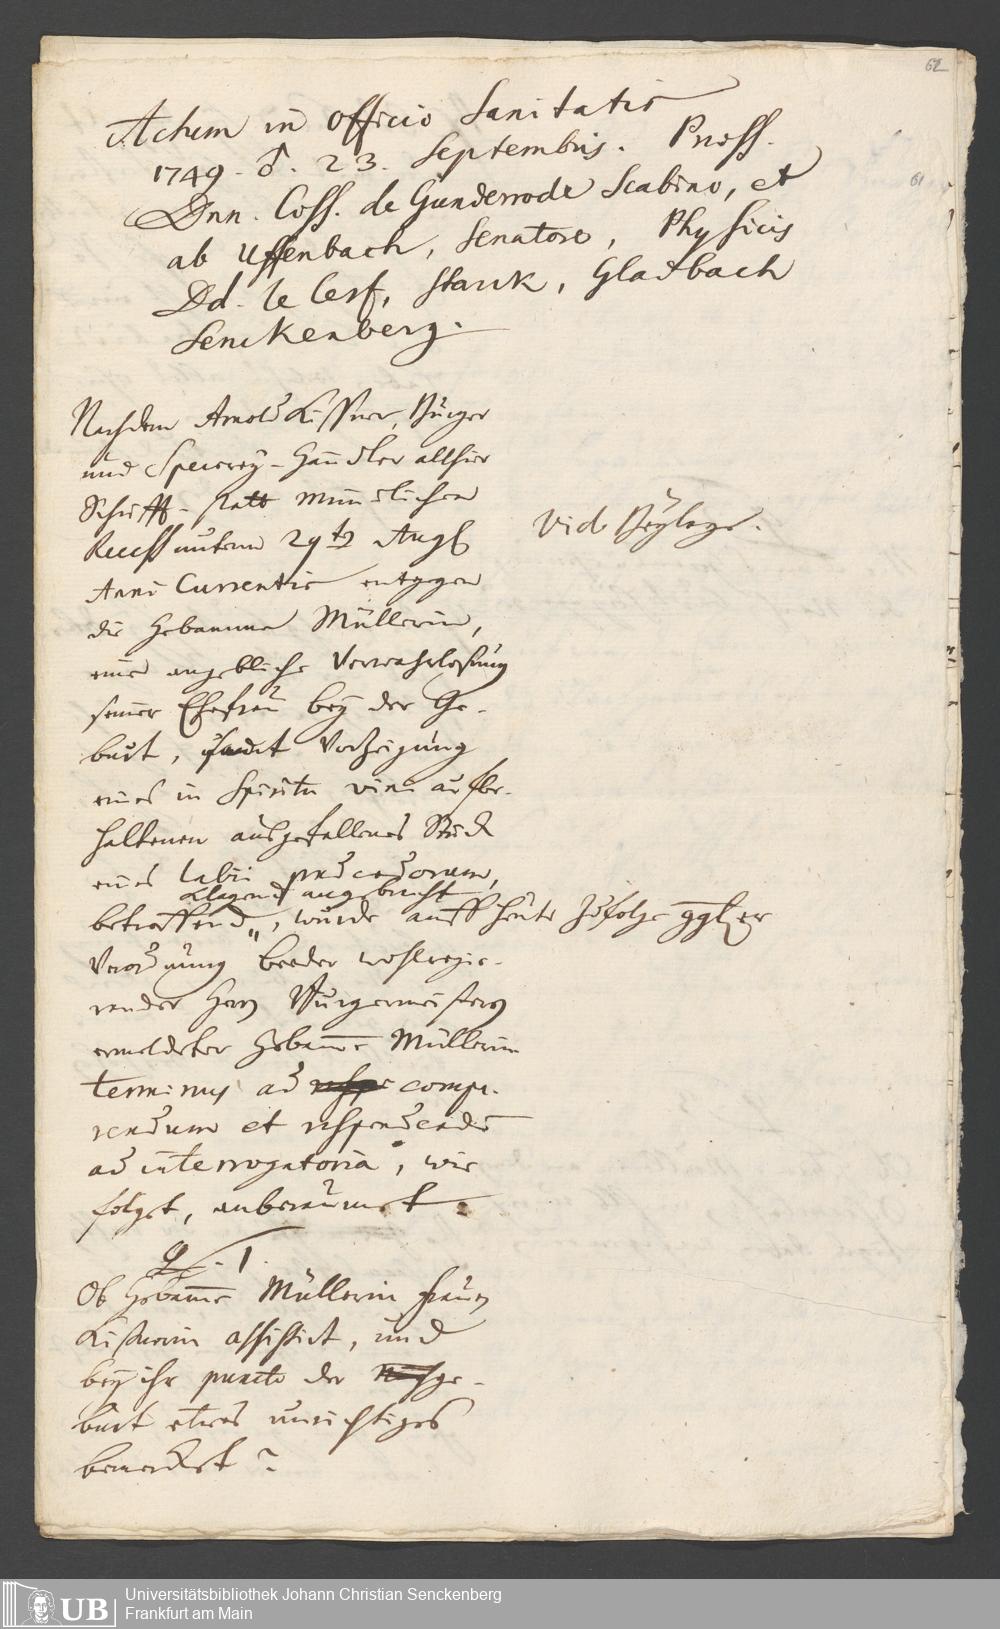 62
Actum in Officio Sanitatis
1749. ♂. 23. Septembris. Præss.
61
Dnn. Coss. de Gunderrode Scabino, et
ab Uffenbach, Senatore, Physicis
Dd. le Cerf, Starck, Gladbach
Senckenberg.
Nachdem Arnold Kissner, Bürger
und Specerey-Händler allhier
Schrifft- statt mündlichen
Recess unterm 29ten Augs
Anni Currentis entgegen
die Hebamme Müllerin,
eine angebliche Verwahrlosung
seiner Ehefrau bey der Ge-
burt, Vorzeigung
eines in Spiritu vini aufbe-
haltenen ausgefallenes Stück
eines labii pudendorum,
klagend angebracht
betreffend, wurde auff heute zufolge
Verordnung beeder wohlregie-
render Herrn Burgermeistern
ermeldeter Hebamme Müllerin
terminus ad compa-
rendum et respondendum
ad interrogatoria, wie
folget, anberaumet.
Vid. Beylage.
Q. 1.
Ob Hebamme Müllerin Frauen
Kissnerin assistirt, und
bey ihr puncto der ge-
burt etwas unrichtiges
bemercket?
UB
Universitätsbibliothek Johann Christian Senckenberg
Frankfurt am Main